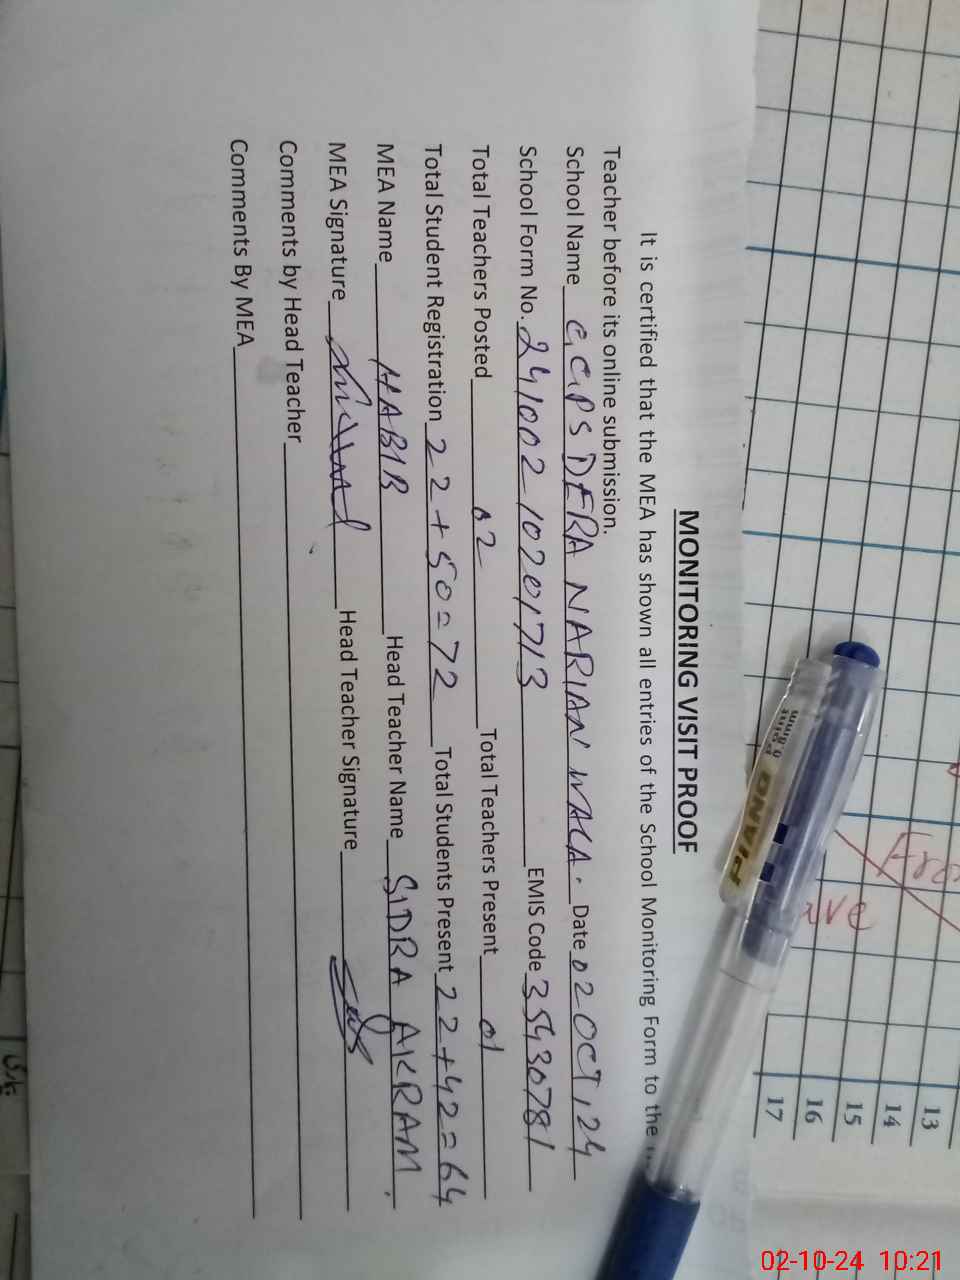 MONITORING VISIT PROOF
It is certified that the MEA has shown all entries of the School Monitoring Form to the
Teacher before its online submission.
School Name GGPS DERA NARIAN WALA. Date 02 OCT, 24
School Form No. 241002 10201713 EMIS Code 35430781
Total Teachers Posted 02 Total Teachers Present 01
Total Student Registration 22+50=72 Total Students Present 22+42=64
MEA Name HABIB Head Teacher Name SIDRA AKRAM.
MEA Signature Head Teacher Signature
Comments by Head Teacher
Comments By MEA
PIANO
Point
0.8mm
13
14
15
16
17
02-10-24 10:21